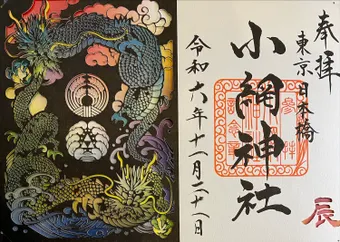 奉拝
東京日本橋
小網神社
令和六年十一月二十八日
辰